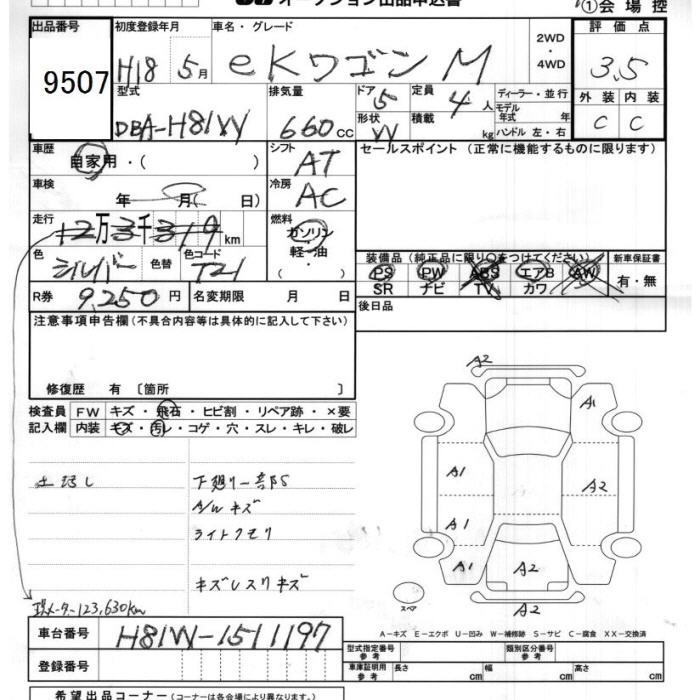 オークション出品申込書
①会場控
出品番号
9507
初度登録年月
H18 5月
車名・グレード
eKワゴン M
2WD
・
4WD
評価点
3.5
型式
DBA-H81W
排気量
660cc
ドア
5
定員
4人
ディーラー・並行
モデル年式 年
形状
W
積載
kg
ハンドル 左・右
外装 内装
C C
車歴
自家用・( )
シフト
AT
セールスポイント (正常に機能するものに限ります)
車検
年 月( 日)
冷房
AC
走行
12万3千319km
燃料
ガソリン
軽油
・
色
シルバー
色替
色コード
T21
R券
9,250円
名変期限 月 日
装備品(純正品に限り○をつけてください)
新車保証書
PS PW ABS エアB AW
SR ナビ TV カワ
有・無
後日品
注意事項申告欄(不具合内容等は具体的に記入して下さい)
修復歴 有〔箇所 〕
検査員
記入欄
FW キズ・飛石・ヒビ割・リペア跡・×要
内装 キズ・汚レ・コゲ・穴・スレ・キレ・破レ
下廻り一部S
A/Wキズ
ライトクモリ
キズレスリキズ
現メーター123,630km
A2
A1
A1
A2
A1
A1
A2
A2
スペア
A-キズ E-エクボ U-凹み W-補修跡 S-サビ C-腐食 XX-交換済
車台番号
H81W-1511197
登録番号
型式指定番号
参考
類別区分番号
参考
車庫証明用
参考
長さ cm 幅 cm 高さ cm
希望出品コーナー(コーナーは各会場により異なります。)